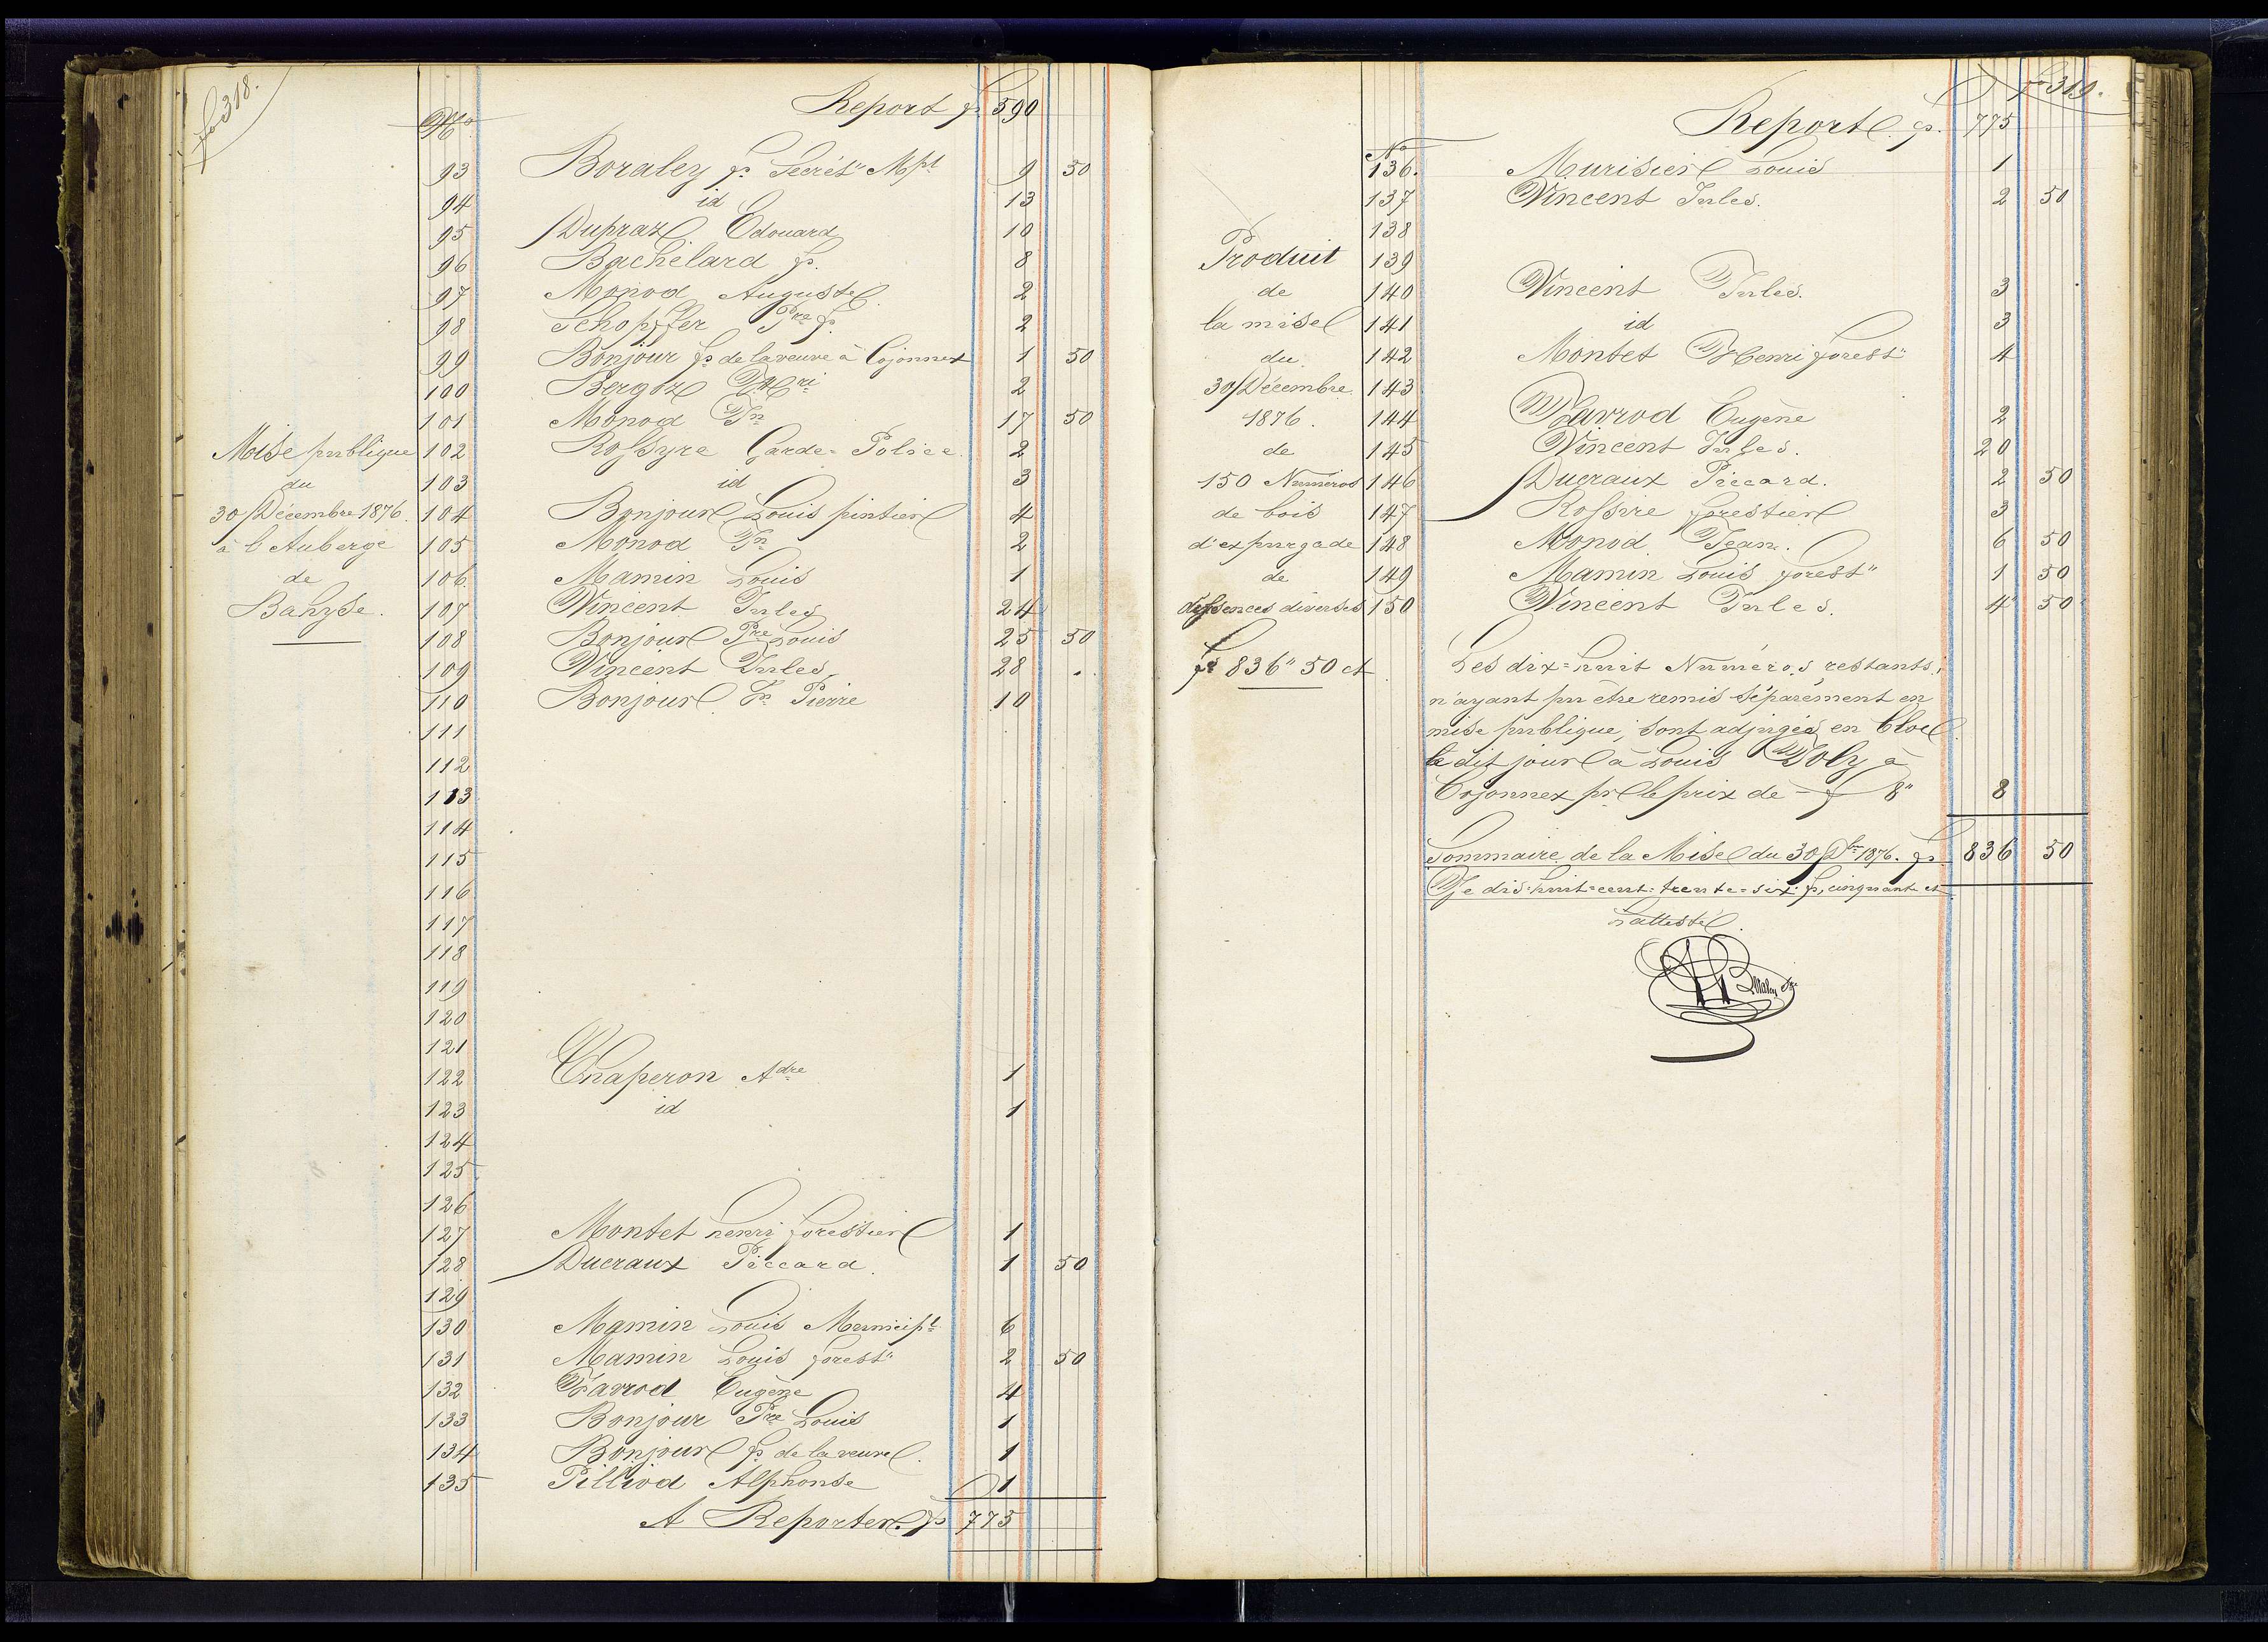 fo 318.
Report fr. 590
No
93 Boraley fs Secrét.re Mpl 9 50
94 id 13
95 Dupraz Edouard 10
96 Bachelard fs. 8
97 Monod Auguste 2
98 Schopffer Pre fs. 2
99 Bonjour fs de la veuve à Cojonnex 1 50
100 Bergoz Hri 2
101 Monod Jn 17 50
Mise publique 102 Rossyre Garde-Police 2
du 103 id 3
30 Décembre 1876. 104 Bonjour Louis pintier 4
à l'Auberge 105 Monod Jn 2
de 106. Mamin Louis 1
Bahyse. 107 Vincent Jules 24
108 Bonjour Pre Louis 25 50
109 Vincent Jules 28 .
110 Bonjour Fs Pierre 10
111
112
113
114
115
116
117
118
119
120
121
122 Chaperon Adre 1
123 id 1
124
125
126
127 Montet henri forestier 1
128 Ducraux Piccard. 1 50
129
130 Mamin Louis Municipl 6
131 Mamin Louis forestr 2 50
132 Favrod Eugène 4
133 Bonjour Pre Louis 1
134 Bonjour fs de la veuve. 1
135 Pilliod Alphonse 1
A Reporter. fr 775
fo 319.
Report. fr. 775
No
136. Murisier Louis 1
137 Vincent Jules. 2 50
138
Produit 139
de 140 Vincent Jules. 3
la mise 141 id 3
du 142 Montet Henri forestr 4
30 Décembre 143
1876. 144 Favrod Eugène 2
de 145 Vincent Jules. 20
150 Numéros 146 Ducraux Piccard. 2 50
de bois 147 Rossire forestier 3
d'expurgade 148 Monod Jean. 6 50
de 149 Mamin Louis forestr 1 50
dessences diverses 150 Vincent Jules. 4 50
fr 836" 50 ct
Les dix-huit Numéros restants,
n'ayant pu être remis séparément en
mise publique, sont adjugés en bloc
le dit jour à Louis Doly à
Cojonnex pr le prix de - f 8" 8
Sommaire de la Mise du 30 Dbre 1876. fr. 836 50
Je dis huit-cent-trente-six fr, cinquante ct
L'atteste.